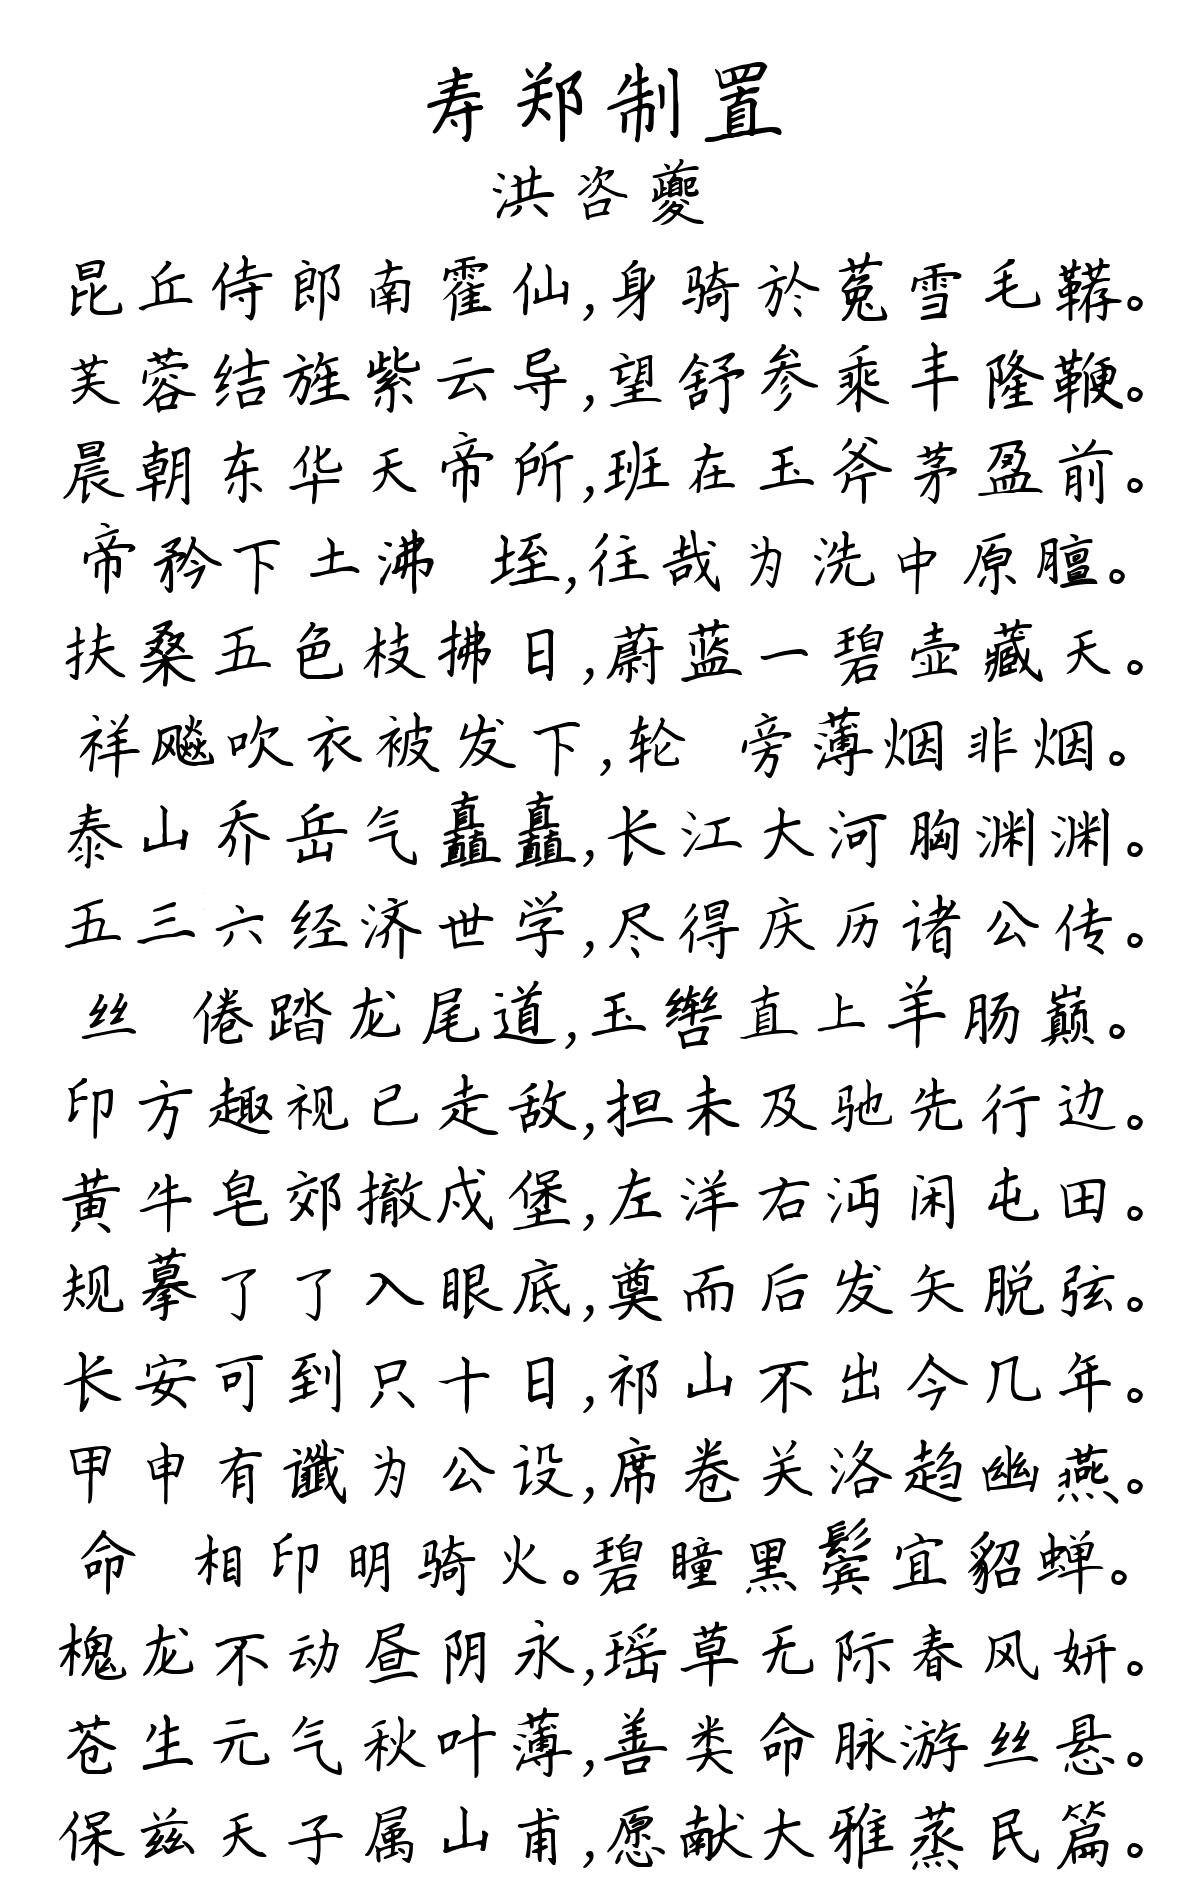 寿郑制置
洪咨夔
昆丘侍郎南霍仙,身骑於菟雪毛鞯。
芙蓉结旌紫云导,望舒参乘丰隆鞭。
晨朝东华天帝所,班在玉斧茅盈前。
帝矜下土沸 垤,往哉为洗中原膻。
扶桑五色枝拂日,蔚蓝一碧壶藏天。
祥飚吹衣被发下,轮 旁薄烟非烟。
泰山乔岳气矗矗,长江大河胸渊渊。
五三六经济世学,尽得庆历诸公传。
丝 倦踏龙尾道,玉辔直上羊肠巅。
印方趣视已走敌,担未及驰先行边。
黄牛皂郊撤戍堡,左洋右沔闲屯田。
规摹了了入眼底,奠而后发矢脱弦。
长安可到只十日,祁山不出今几年。
甲申有谶为公设,席卷关洛趋幽燕。
命 相印明骑火。碧瞳黑鬓宜貂蝉。
槐龙不动昼阴永,瑶草无际春风妍。
苍生元气秋叶薄,善类命脉游丝悬。
保兹天子属山甫,愿献大雅蒸民篇。